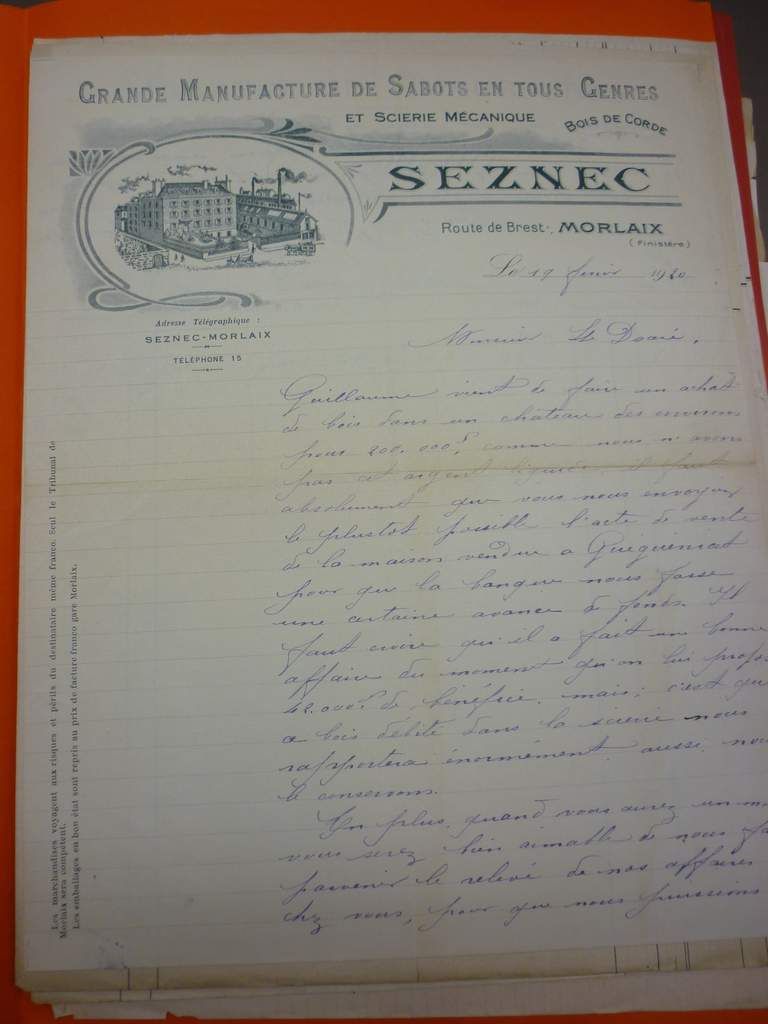 GRANDE MANUFACTURE DE SABOTS EN TOUS GENRES
ET SCIERIE MÉCANIQUE
BOIS DE CORDE
SEZNEC
Route de Brest, MORLAIX
(Finistère)
Le 19 1920
Adresse Télégraphique :
SEZNEC-MORLAIX
TÉLÉPHONE 15
Monsieur Le Doaré,
Guillaume vient de faire un achat
de bois dans un chateau des environs
pour 200.000f, comme nous n'avons
pas cet argent liquide, il faut
absolument que vous nous envoyiez
le plustot possible l'acte de vente
de la maison vendue a
pour que la banque nous fasse
une certaine avance de fonds. Il
faut croire qu'il a fait une bonne
affaire du moment qu'on lui
42.000f de bénéfice, mais, c'est que
ce bois débité dans la scierie nous
rapportera énormément aussi, nous
le conservons.
En plus, quand vous aurez un
vous serez bien aimable de nous
parvenir le relevé de nos affaires
chez vous, pour que nous puissions
Les marchandises voyagent aux risques et périls du destinataire même franco. Seul le Tribunal de
Morlaix sera compétent.
Les emballages en bon état sont repris au prix de facture franco gare Morlaix.